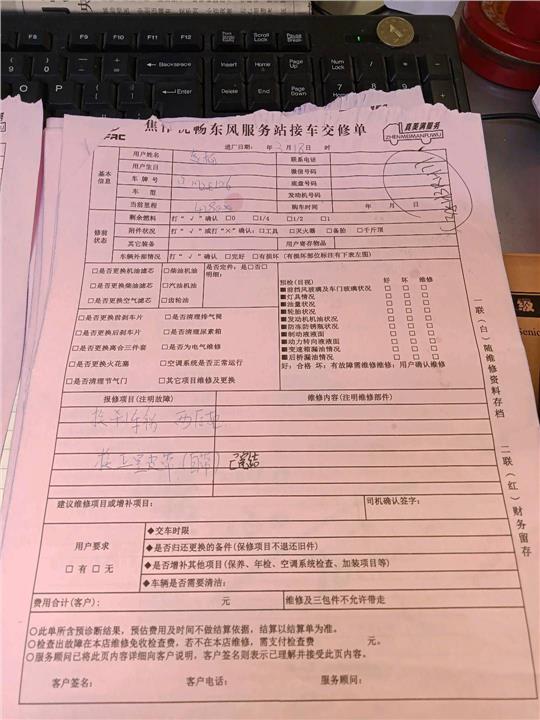 焦作悦畅东风服务站接车交修单
真美满服务
ZHENMEIMANFUWU
进厂日期: 年 3月18日 时
基本信息
用户姓名 联系电话
用户生日 微信号码
车牌号 底盘号码
车型 发动机号码
当前里程 购车时间 年 月 日
修前状态
剩余燃料 打"√"确认 □0 □1/4 □1/2 □1
附件状况 打"√"或打"×"确认:□工具 □灭火器 □备胎 □千斤顶
其它装备 用户寄存物品
车辆外部情况 打"√"确认 □完好 □有损坏(有损坏部位标注有下表左图)
□是否更换机油滤芯 □柴油机油 是否定件:是□否□
明细:
□是否更换柴油滤芯 □汽油机油
□是否更换空气滤芯 □齿轮油
□是否更换前刹车片 □是否清理排气筒
□是否更换后刹车片 □是否清理尿素箱
□是否更换离合三件套 □是否为电气维修
□是否更换火花塞 □空调系统是否正常运行
□是否清理节气门 □其它项目维修及更换
预检(目视) 好 坏 维修
■前挡风玻璃及车门玻璃状况 □ □ □
■灯具情况 □ □ □
■油量状况 □ □ □
■轮胎状况 □ □ □
■发动机机油状况 □ □ □
■防冻防锈瓶状况 □ □ □
■制动液液面 □ □ □
■动力转向液液面 □ □ □
■变速箱漏油情况 □ □ □
■后桥漏油情况 □ □ □
好:合格 坏:有故障需维修维修:用户确认维修
报修项目(注明故障) 维修内容(注明维修部件)
换刹车片
已结
建议维修项目或增补项目: 司机确认签字:
用户要求
□有 □无
◆交车时限
◆是否归还更换的备件(保修项目不退还旧件)
◆是否增补其他项目(保养、年检、空调系统检查、加装项目等)
◆车辆是否需要清洁:
费用合计(客户): 元 维修及三包件不允许带走
○此单所含预诊断结果,预估费用及时间不做结算依据,结算以结算单为准。
○检查出故障在本店维修免收检查费,若不在本店维修,需支付检查费 元。
○服务顾问已将此页内容详细向客户说明,客户签名则表示已理解并接受此页内容。
客户签名: 客户电话: 服务顾问:
一联(白)随维修资料存档
二联(红)财务留存
F8
F9
F10
F11
F12
Scroll Lock
Backspace
Insert
Home
Page Up
Num Lock
Enter
Delete
End
Page Down
O
P